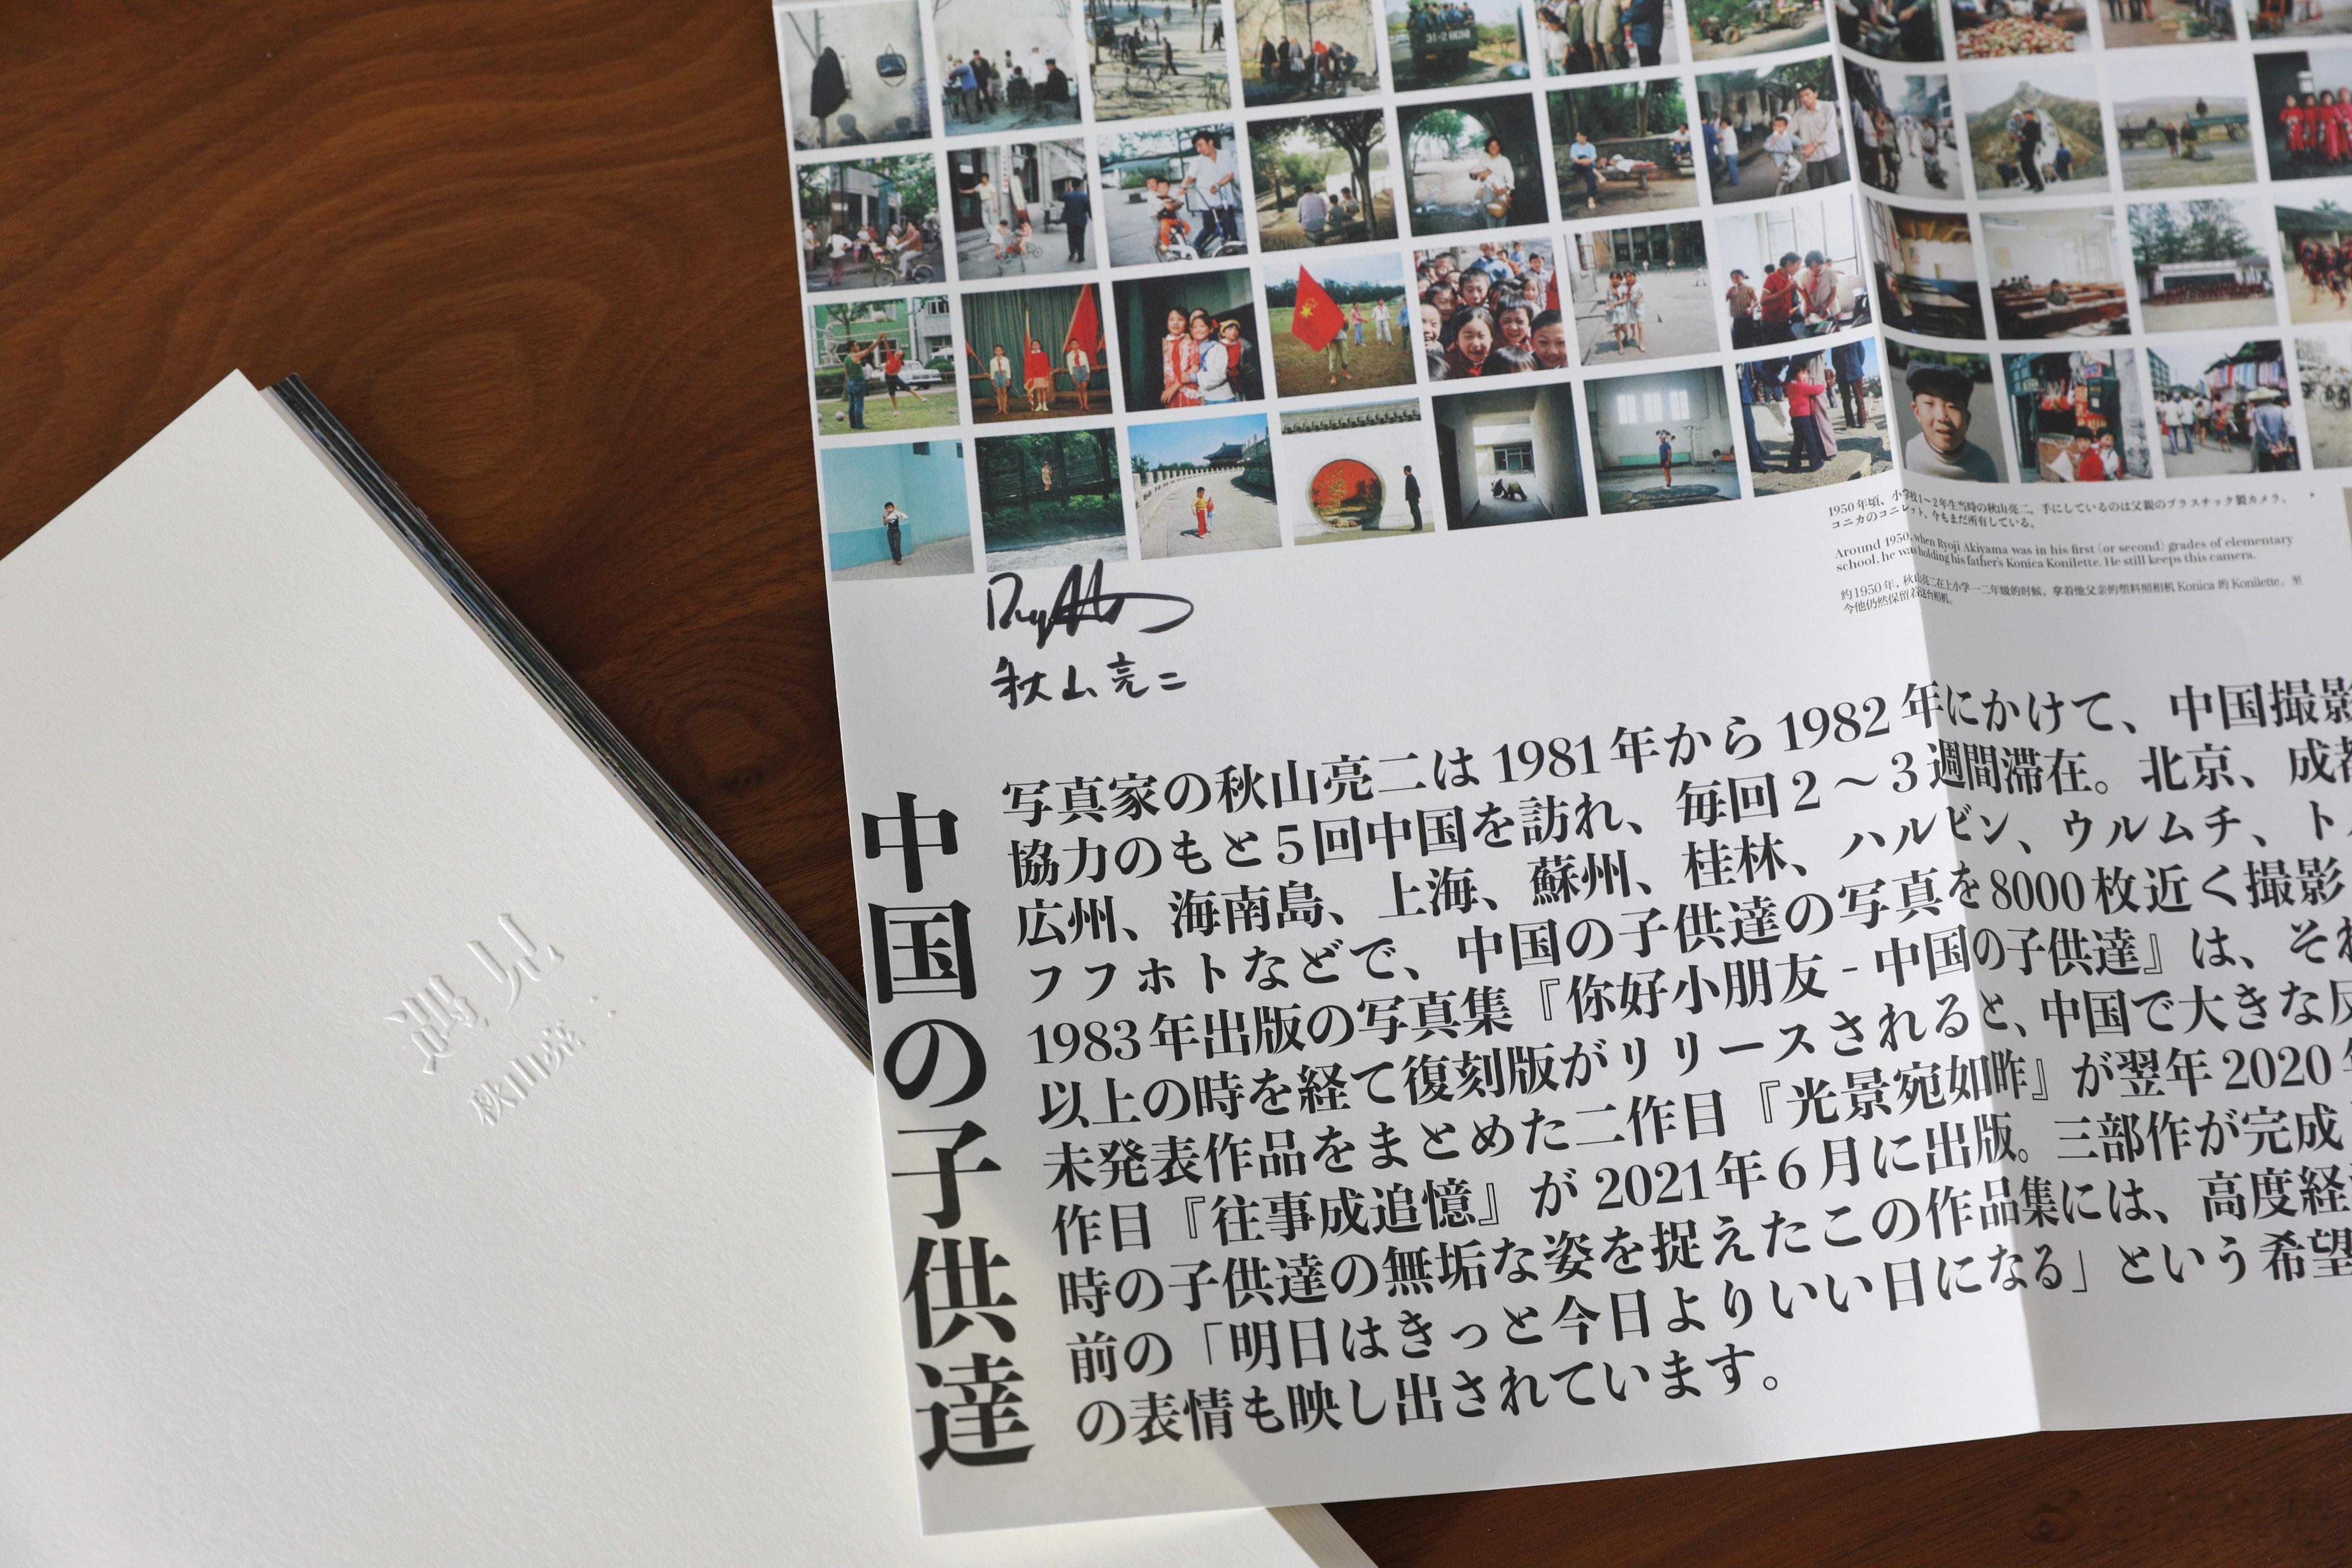 遇見
秋山亮二
31-2
1950年頃、小学校1〜2年生当時の秋山亮二。手にしているのは父親のプラスチック製カメラ、
コニカのコニレット。今もまだ所有している。
Around 1950, when Ryoji Akiyama was in his first (or second) grades of elementary
school, he was holding his father's Konica Konilette. He still keeps this camera.
约1950年，秋山亮二在上小学一二年级的时候，拿着他父亲的塑料照相机 Konica 的 Konilette。至
今他仍然保留着这台相机。
秋山亮二
中国の子供達
写真家の秋山亮二は1981年から1982年にかけて、中国撮影
協力のもと5回中国を訪れ、毎回2〜3週間滞在。北京、成都
広州、海南島、上海、蘇州、桂林、ハルビン、ウルムチ、ト
フフホトなどで、中国の子供達の写真を8000枚近く撮影
1983年出版の写真集『你好小朋友 - 中国の子供達』は、それ
以上の時を経て復刻版がリリースされると、中国で大きな反
未発表作品をまとめた二作目『光景宛如昨』が翌年2020年
作目『往事成追憶』が2021年6月に出版。三部作が完成
時の子供達の無垢な姿を捉えたこの作品集には、高度経
前の「明日はきっと今日よりいい日になる」という希望
の表情も映し出されています。